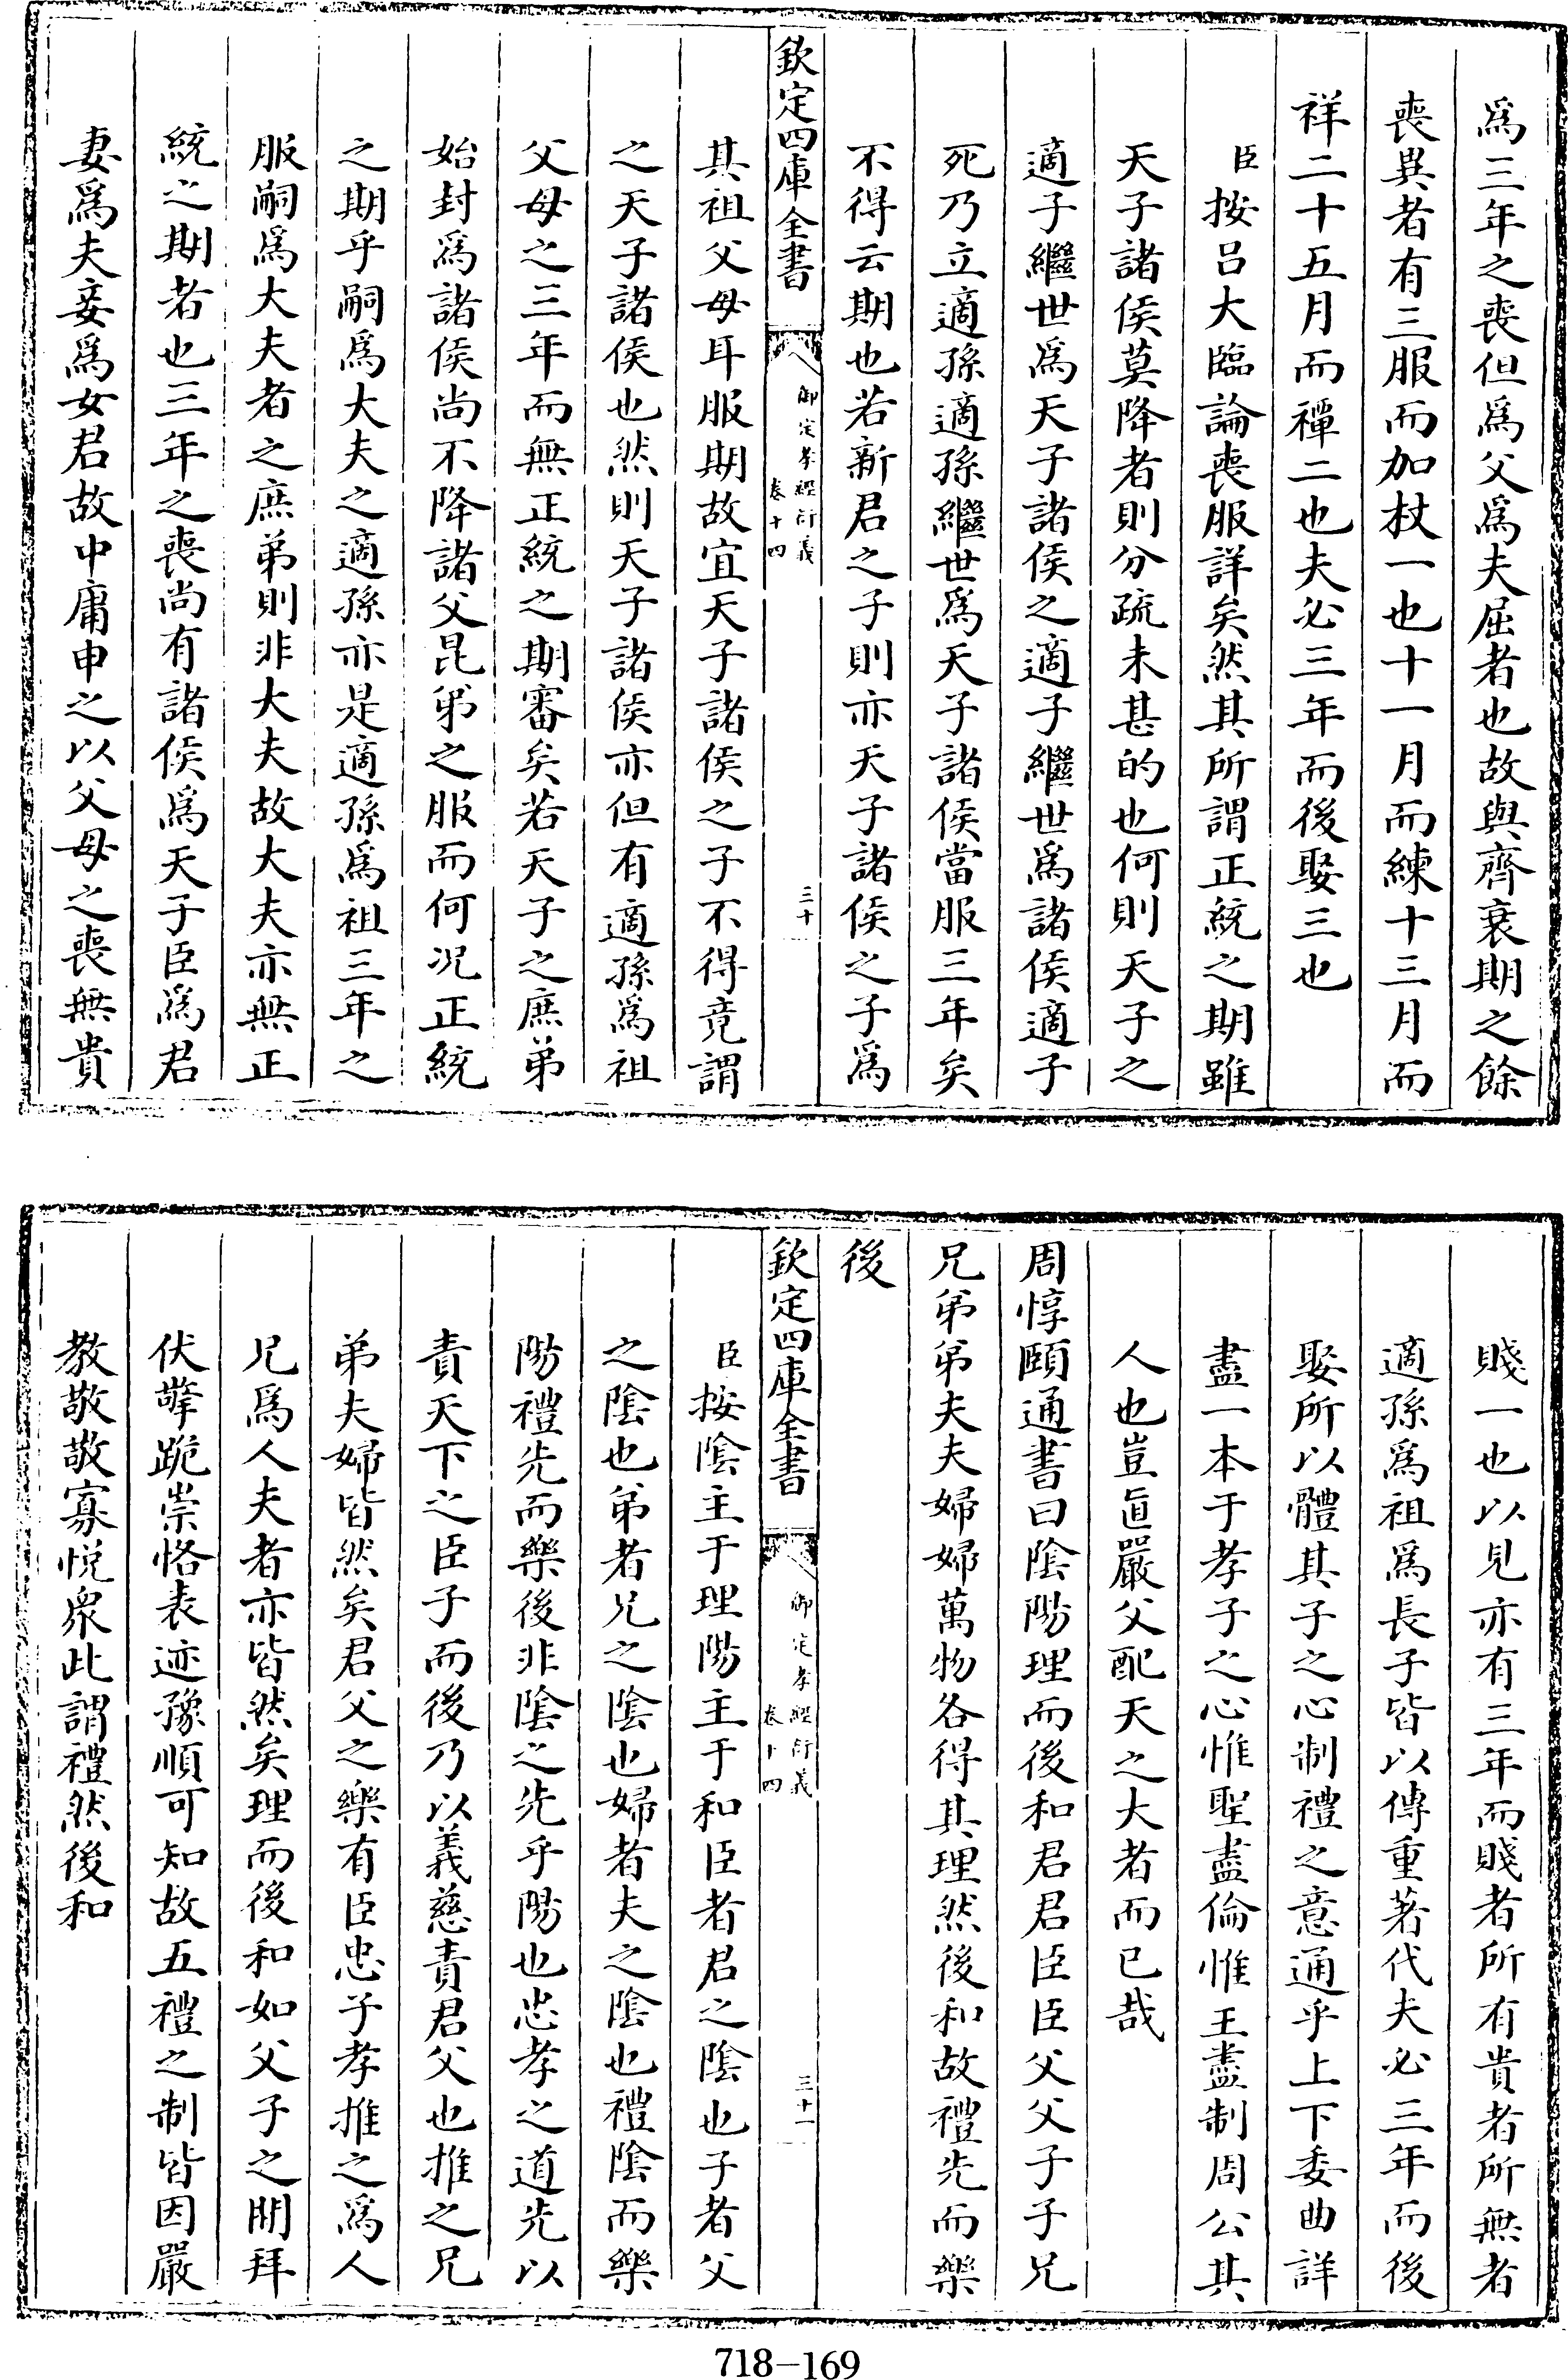 爲三年之喪但爲父爲夫屈者也故與齊衰期之餘
喪異者有三服而加杖一也十一月而練十三月而
祥二十五月而禫二也夫必三年而後娶三也
臣按呂大臨論喪服詳矣然其所謂正統之期雖
天子諸侯莫降者則分疏未甚的也何則天子之
適子繼世爲天子諸侯之適子繼世爲諸侯適子
死乃立適孫適孫繼世爲天子諸侯當服三年矣
不得云期也若新君之子則亦天子諸侯之子爲
欽定四庫全書
御定孝經衍義
卷十四
三十
其祖父母耳服期故宜天子諸侯之子不得竟謂
之天子諸侯也然則天子諸侯亦但有適孫爲祖
父母之三年而無正統之期審矣若天子之庶弟
始封爲諸侯尚不降諸父昆弟之服而何況正統
之期乎嗣爲大夫之適孫亦是適孫爲祖三年之
服嗣爲大夫者之庶弟則非大夫故大夫亦無正
統之期者也三年之喪尚有諸侯爲天子臣爲君
妻爲夫妾爲女君故中庸申之以父母之喪無貴
賤一也以見亦有三年而賤者所有貴者所無者
適孫爲祖爲長子皆以傳重著代夫必三年而後
娶所以體其子之心制禮之意通乎上下委曲詳
盡一本于孝子之心惟聖盡倫惟王盡制周公其
人也豈直嚴父配天之大者而已哉
周惇頤通書曰陰陽理而後和君君臣臣父父子子兄
兄弟弟夫夫婦婦萬物各得其理然後和故禮先而樂
後
欽定四庫全書
御定孝經衍義
卷十四
三十一
臣按陰主于理陽主于和臣者君之陰也子者父
之陰也弟者兄之陰也婦者夫之陰也禮陰而樂
陽禮先而樂後非陰之先乎陽也忠孝之道先以
責天下之臣子而後乃以義慈責君父也推之兄
弟夫婦皆然矣君父之樂有臣忠子孝推之爲人
兄爲人夫者亦皆然矣理而後和如父子之閒拜
伏擎跪崇恪表迹豫順可知故五禮之制皆因嚴
教敬敬寡悅衆此謂禮然後和
718-169